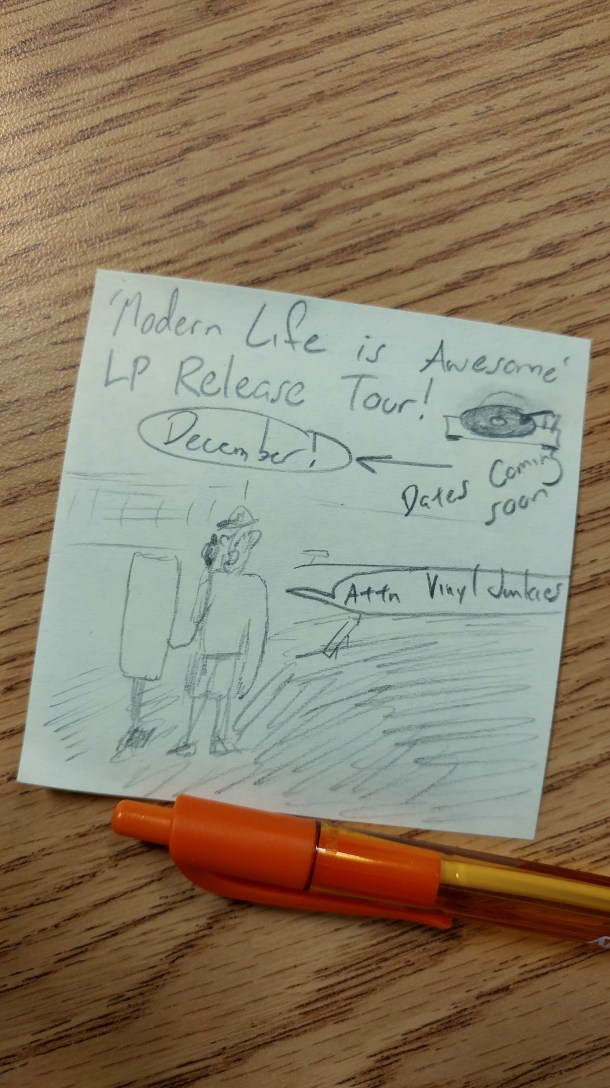 'Modern Life is Awesome'
LP Release Tour!
December!
Dates Coming
soon
Attn Vinyl Junkies